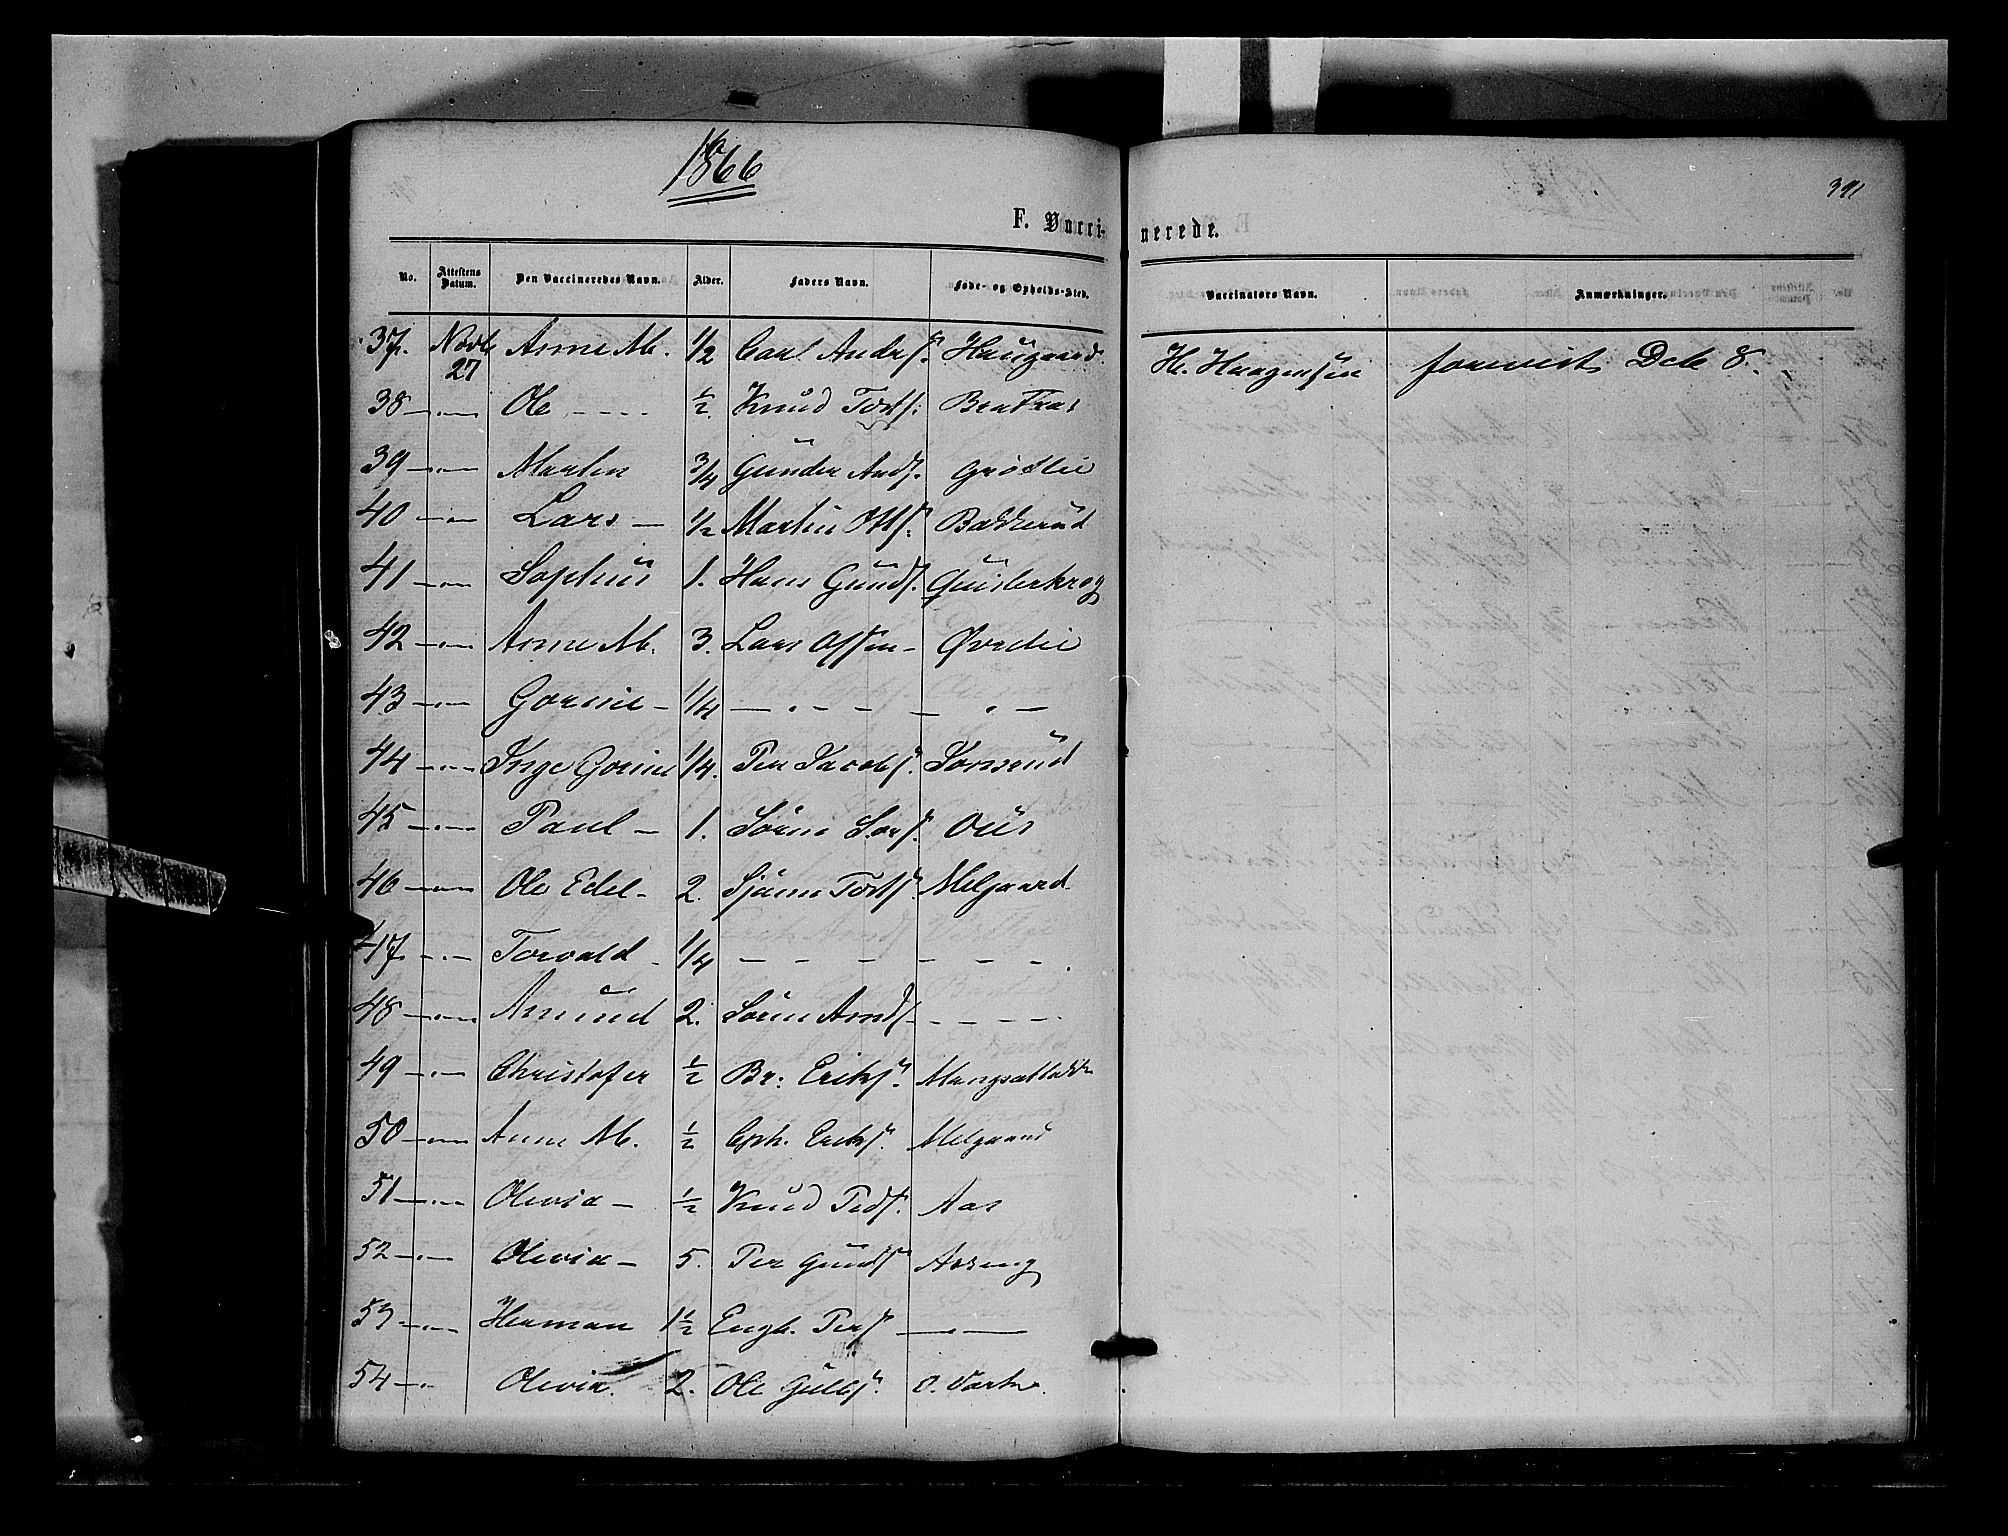 1866
391
F. Vacci-
nerede.
No. Attestens Datum. Den Vaccineredes Navn. Alder. Faders Navn. Føde- og Opholds-Sted. Vaccinators Navn. Anmærkninger.
37. Novb 27 Anne M. 1/2 Carl Andrs. Haugaard. H. Haagensen foreviist Dcb 8.
38 —"— Ole 1/2 Knud Torts.
39 —"— Martin 3/4 Gunder Ands. Grøtlie
40 —"— Lars — 1/2 Martin Otts. Bakkerud
41 —"— Sophus 1. Hans Gunds. Quisterkrog
42 —"— Anne M. 3. Lars Olsen — Øvrelie
43 —"— Gorine — 1/4 — " — — — " —
44 —"— Inge Gorine 1/4. Per Jacobs. Sørsrud
45 —"— Paul — 1. Søren Lars. Ous
46 —"— Ole Edel — 2. Torts. Melgaard
47 —"— Torvald — 1/4 — — — — — — —
48 —"— Amund 2. Søren Amds. — — — —
49 —"— Christofer 1/2 Br: Eriks.
50 —"— Anne M. 1/2 Cph. Eriks. Melgaard
51 —"— Olevia — 1/2 Knud Peds. Aas
52 —"— Olevia — 5. Per Gunds. Aaseng
53 —"— Herman 1 1/2 Engb. Pers. — " —
54 —"— Olevia. 2. Ole Gulbs. O.